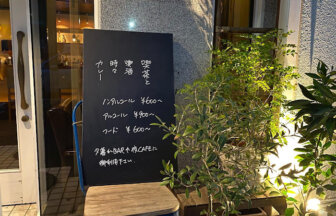 喫茶と
時々
カレー
ノンアルコール ¥600〜
アルコール ¥900〜
フード ¥600〜
夕暮れBAR
CAFEに
御利用下さい